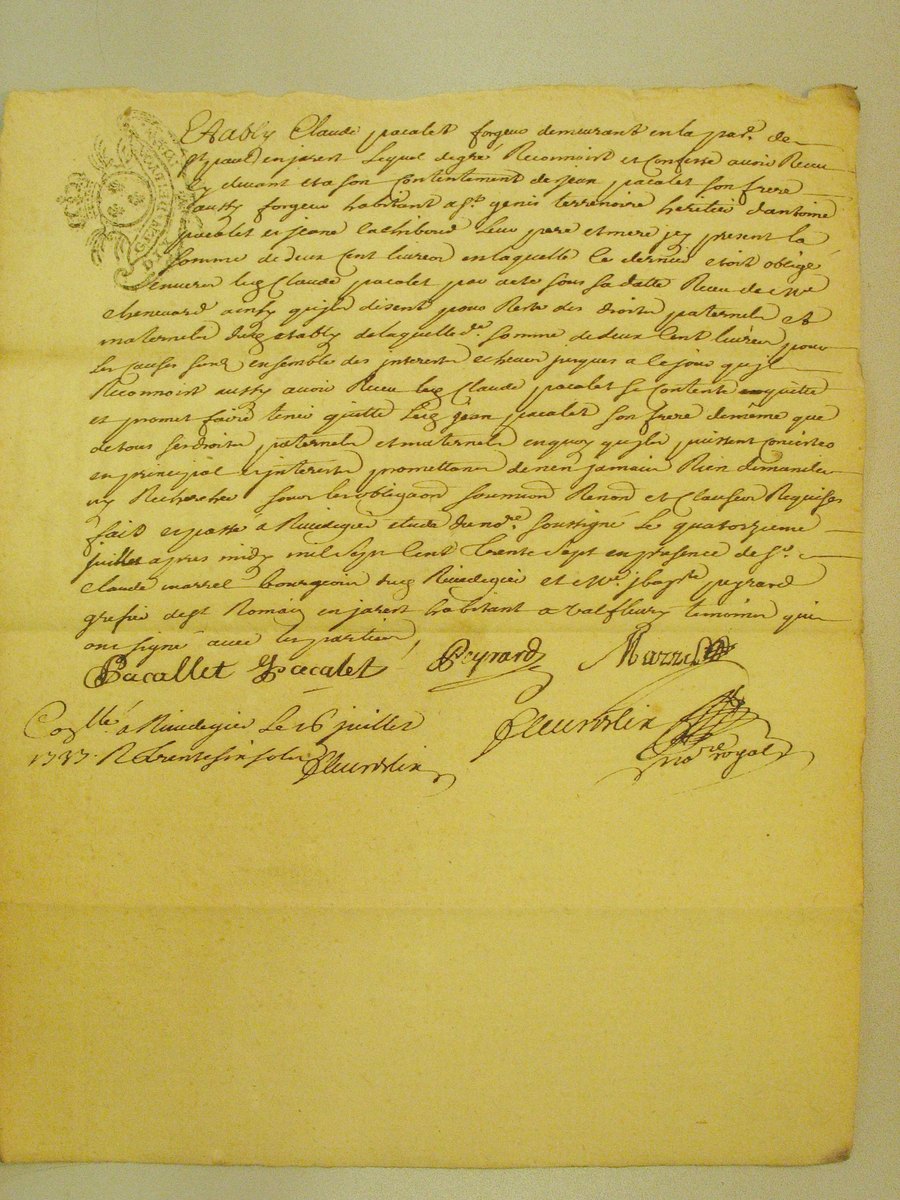 Etably Claude pacalet forgeur demeurant en la par. de
St paul en jarest Lequel de gré Reconnoit et Confesse avoir Receu
cy devant et a son Contentement de jean pacalet son frere
aussy forgeur habitant a St genis terrenoire heritier dantoine
pacalet et jeane Leur pere et mere icy present la
somme de deux Cent livres en laquelle le dernier etoit obligé
envers led Claude pacalet par acte sous sa datte Receu de Me
chenevard ainsy quils disent pour Reste des droits paternels et
maternels dud etably de laquelle de somme de deux Cent livres pour
les causes susd ensemble des interests echeus jusques a ce jour quil
Reconnoit aussy avoir Receu led Claude pacalet se Contente en quitte
et promet faire tenir quitte led jean pacalet son frere de même que
de tous ses droits paternels et maternels en quoy quils puissent Concister
en principal et interests promettant de nen jamais Rien demander
ny Rechercher sous les obligaons soumions Renons et Clauses Requises
fait et passé a Rivedegier etude du nore soussigné Le quatorzieme
juillet apres midy mil sept Cent trente sept en presence de Sr
Claude marrel bourgeois dud Rivedegier et Me jbapte peyrard
grefier de St Romain en jarest habitant a valfleury temoins qui
ont signé avec les parties
Pacallet Pacalet Peyrard Marrel
Conllé a Rivedegier Le 16 juillet
1737. R trente six sols
Fleurdelix
Fleurdelix
nore royal